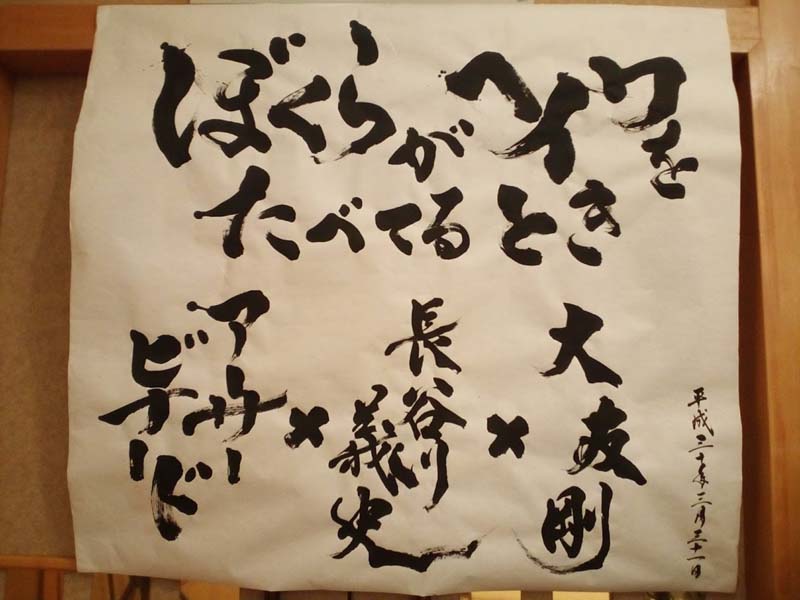 ぼくらがヘイワを
たべてるとき
大友剛
×
長谷川
義史
×
アーサー
ビナード
平成三十年三月三十一日